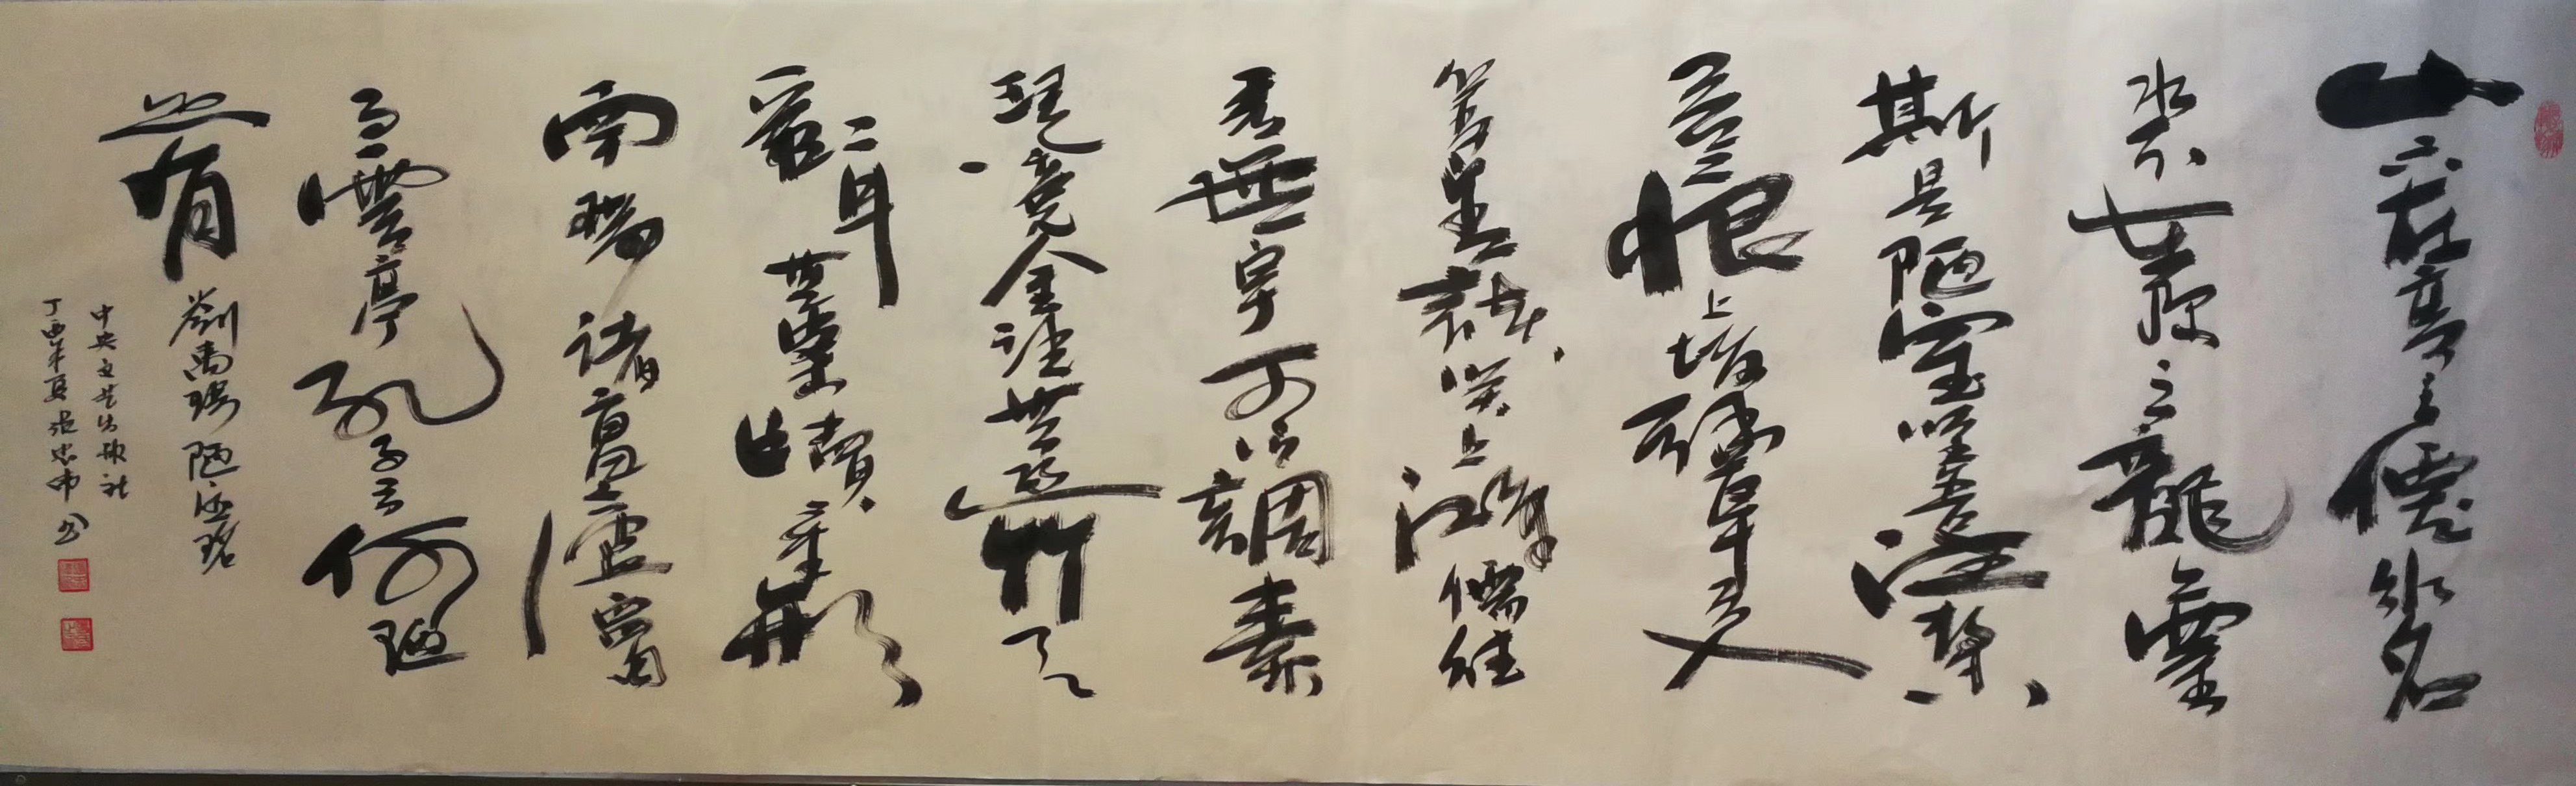 山不在高有僊則名
水不在深有龍則靈
斯是陋室唯吾德馨
苔痕上堦綠草色入
簾青談笑有鴻儒往
來無白丁可以調素
琴閱金經無絲竹之
亂耳無案牘之勞形
南陽諸葛廬西蜀
子雲亭孔子云何陋
之有 劉禹錫陋室銘
中央文艺出版社
丁酉年夏張忠书